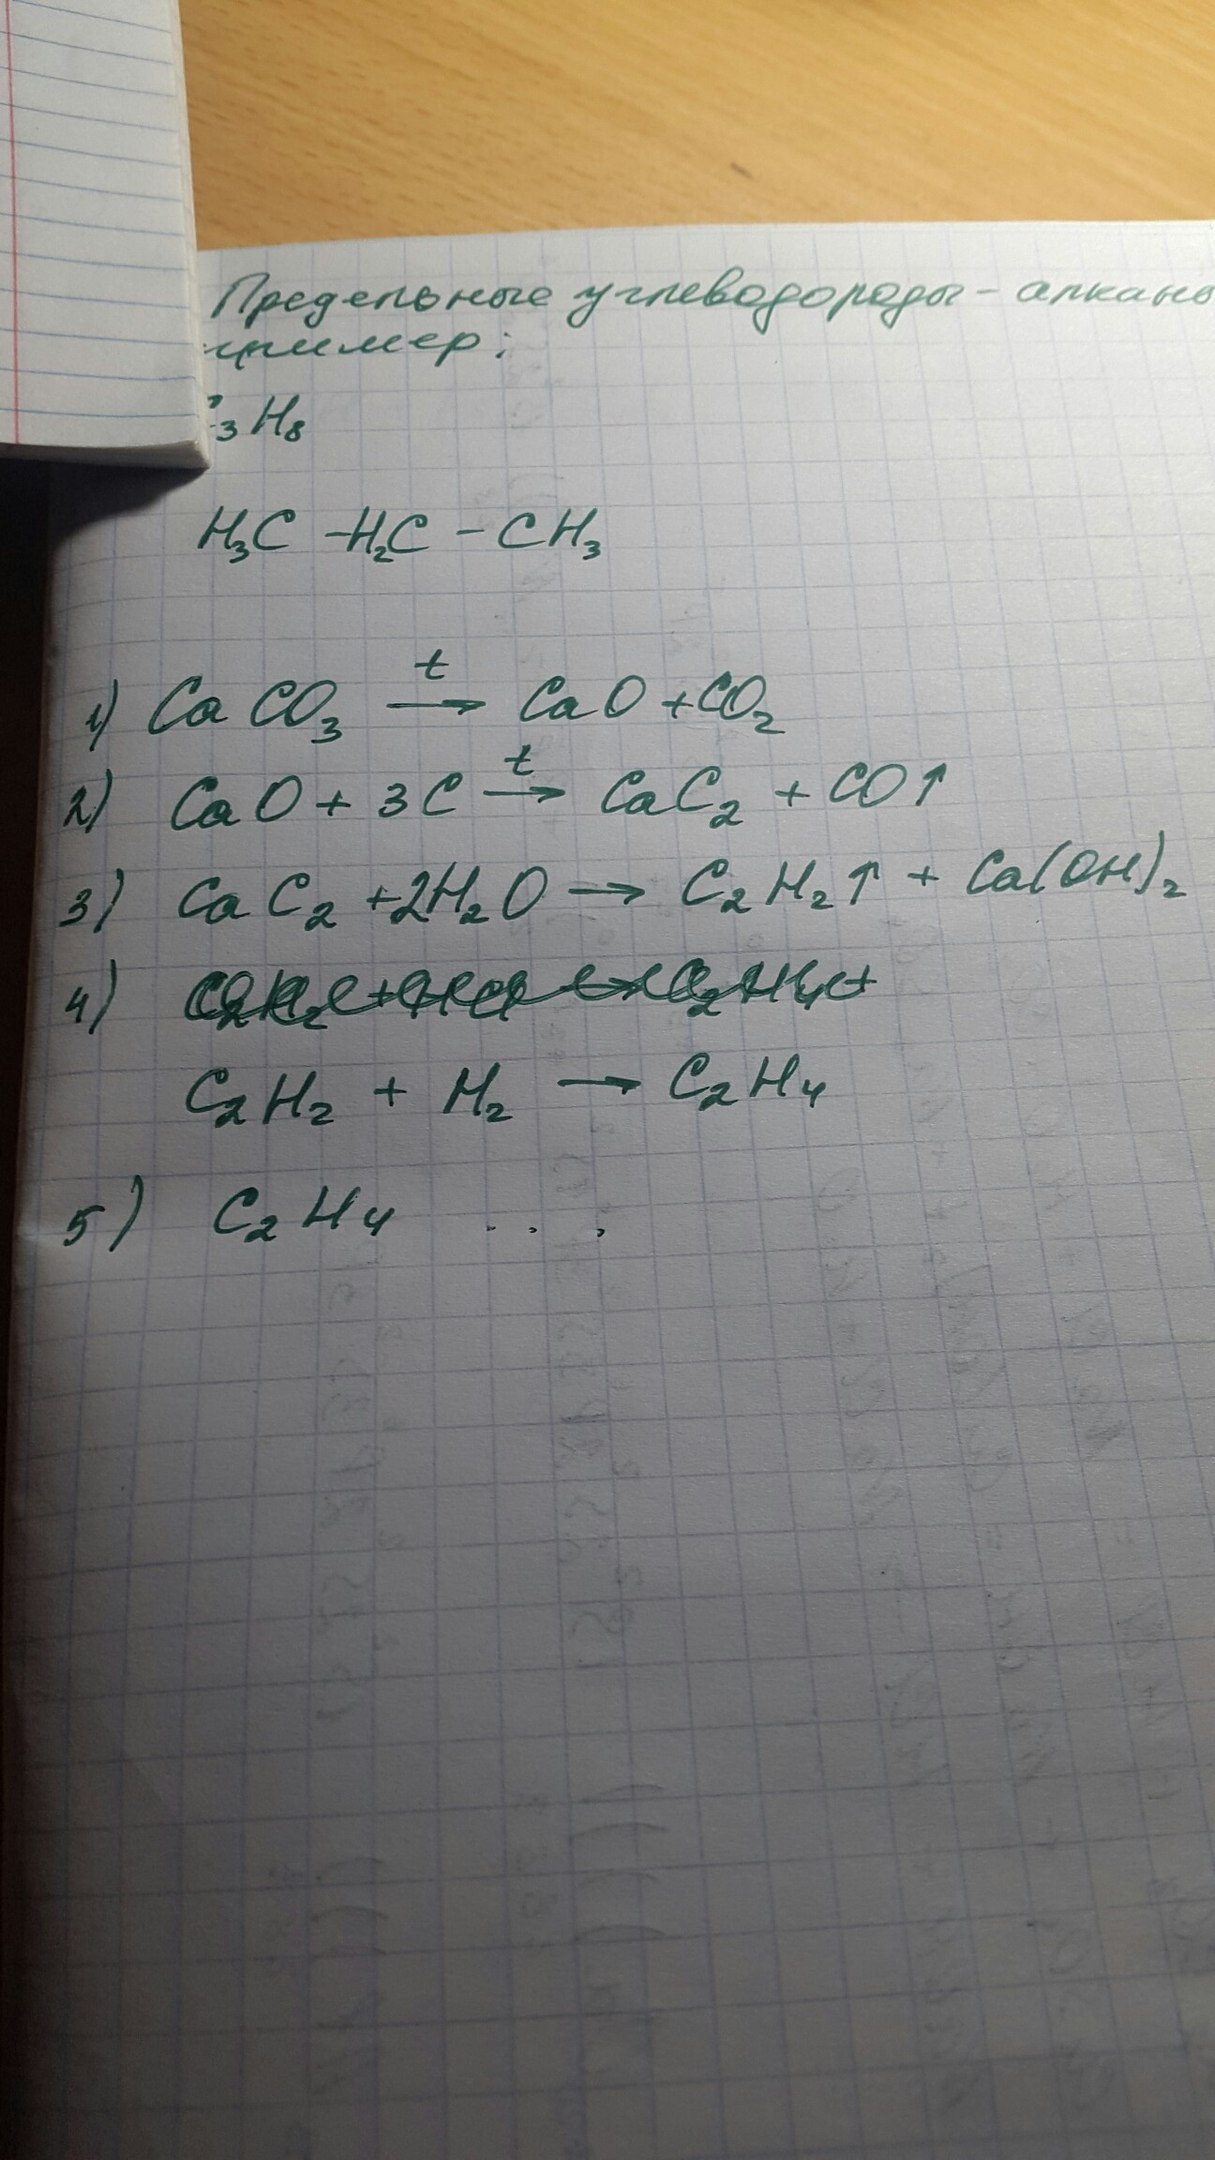 Предельные углеводороды - алканы
пример:
C₃H₈
H₃C - H₂C - CH₃
t
1) CaCO₃ → CaO + CO₂
t
2) CaO + 3C → CaC₂ + CO↑
3) CaC₂ + 2H₂O → C₂H₂↑ + Ca(OH)₂
4)
C₂H₂ + H₂ → C₂H₄
5) C₂H₄ . . .